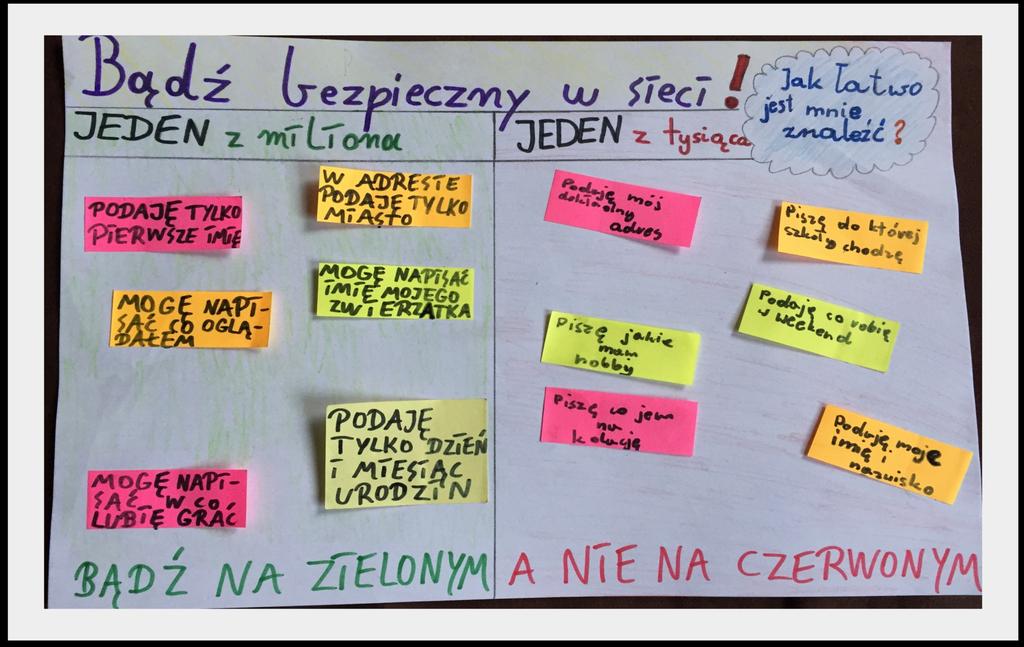 Bądź bezpieczny w sieci!
Jak łatwo
jest mnie
znaleźć?
JEDEN z miliona
PODAJĘ TYLKO
PIERWSZE IMIĘ
W ADRESIE
PODAJĘ TYLKO
MIASTO
MOGĘ NAPI-
SAĆ CO OGLĄ-
DAŁEM
MOGĘ NAPISAĆ
IMIĘ MOJEGO
ZWIERZĄTKA
PODAJĘ
TYLKO DZIEŃ
I MIESIĄC
URODZIN
MOGĘ NAPI-
SAĆ W CO
LUBIĘ GRAĆ
BĄDŹ NA ZIELONYM
JEDEN z tysiąca
Podaję mój
dokładny
adres
Piszę do której
szkoły chodzę
Podaję co robię
w weekend
Piszę jakie
mam
hobby
Piszę co jem
na
kolację
Podaję moje
imię i
nazwisko
A NIE NA CZERWONYM